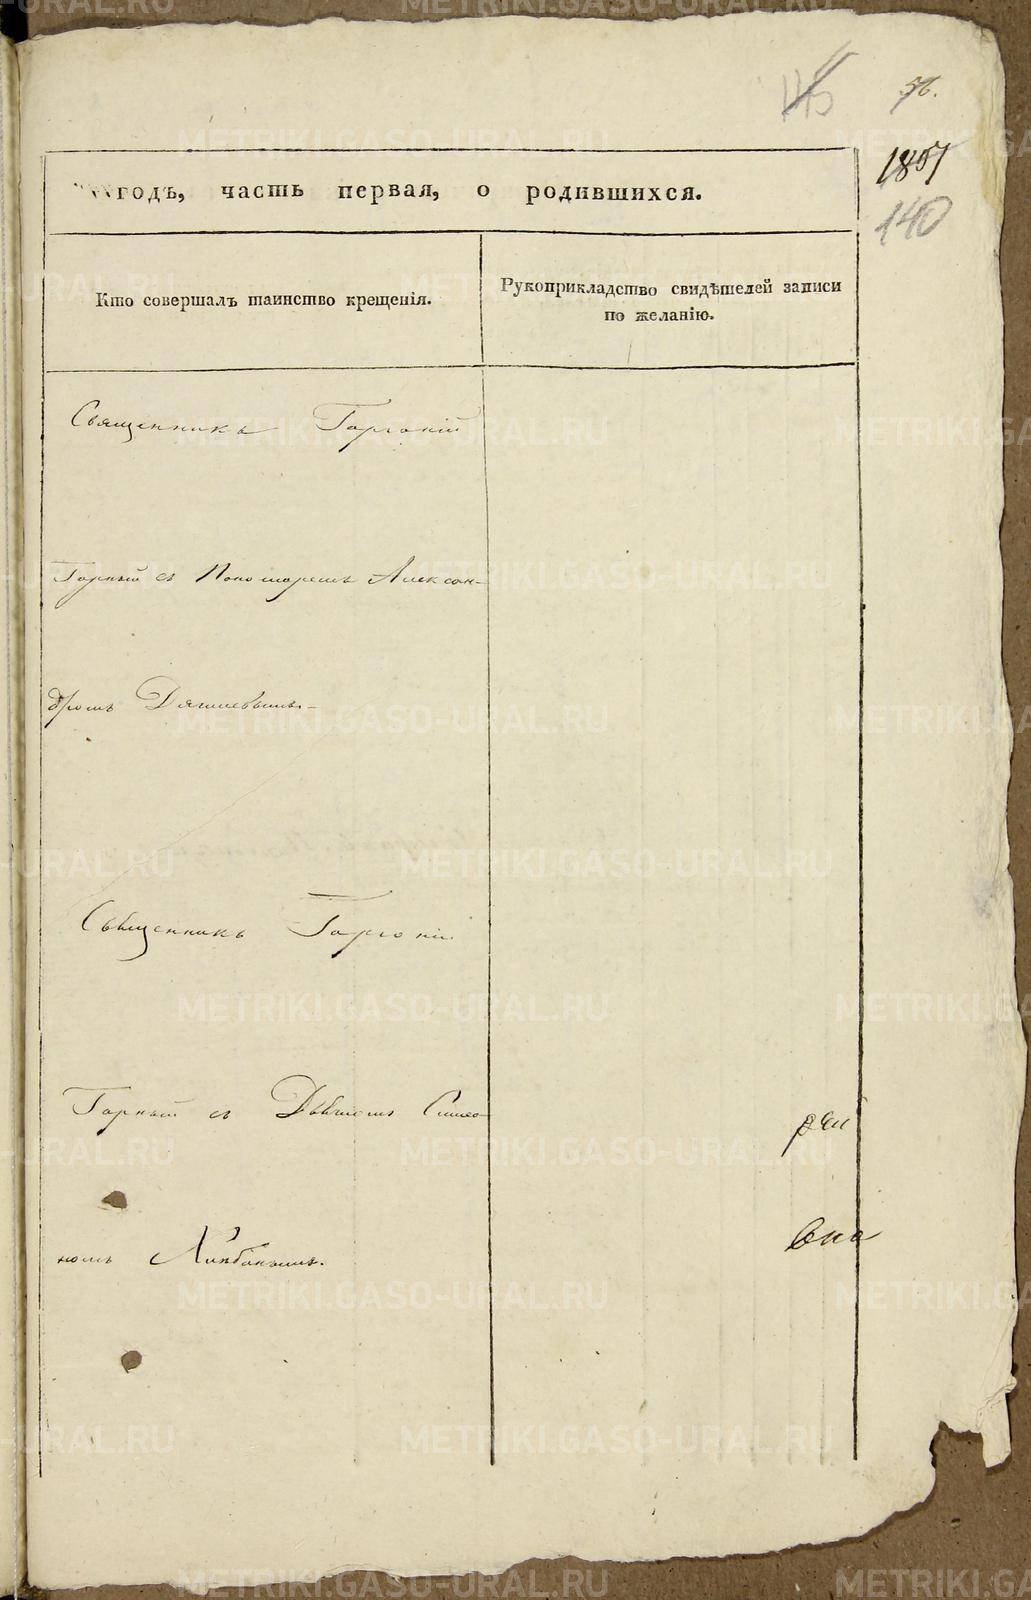 56.
1857
140
годъ, часть первая, о родившихся.
Кто совершалъ таинство крещенія.
Рукоприкладство свидѣтелей записи
по желанію.
Священникъ Горгоній
Горный съ Пономаремъ Алексан-
дромъ Дягилевымъ.
Священникъ Горгоній
Горный съ Дьячкомъ Симео-
номъ
METRIKI.GASO-URAL.RU